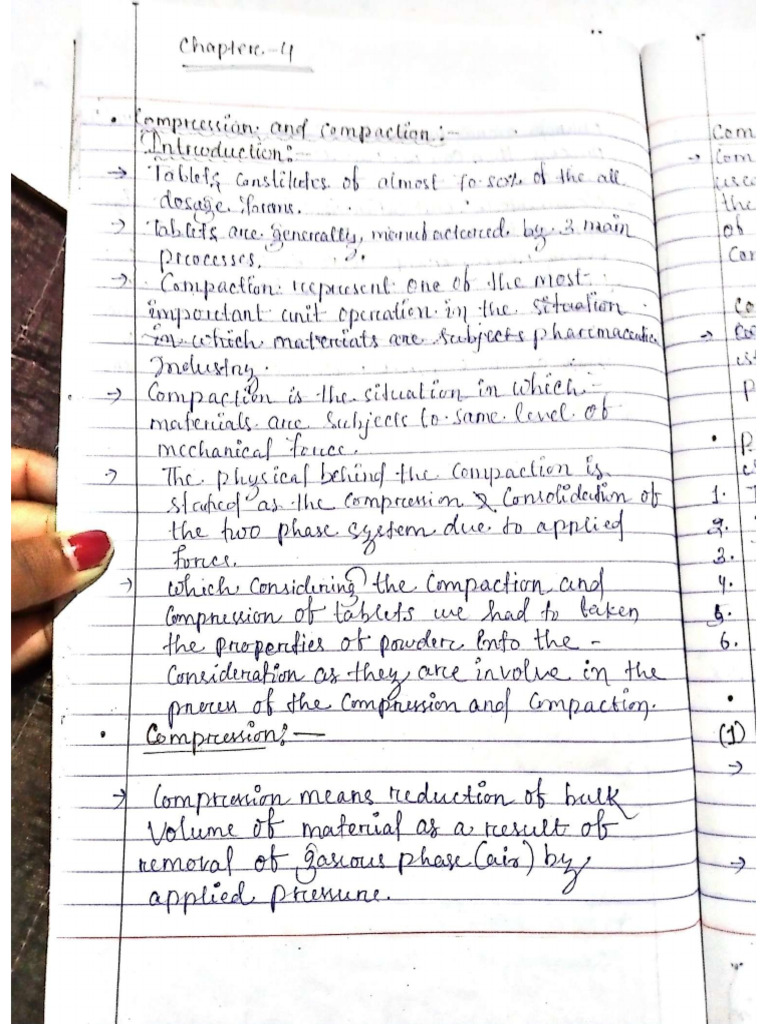 Chapter-4
• Compression and Compaction:-
Introduction:-
→ Tablets constitutes of almost to 80% of the all
dosage forms.
→ Tablets are generally, manufactured by 3 main
processes.
→ Compaction represent one of the most
important unit operation in the situation
in which materials are subjects pharmaceutica
Industry.
→ Compaction is the situation in which
materials are subjects to same level of
mechanical force.
→ The physical behind the compaction is
stated as the compression & consolidation of
the two phase system due to applied
forces.
→ which considering the compaction and
compression of tablets we had to taken
the properties of powder into the -
consideration as they are involve in the
process of the compression and compaction.
• Compression:-
→ Compression means reduction of bulk
volume of material as a result of
removal of gaseous phase (air) by
applied pressure.
Com
→ Com
the
of
Co
→
•
1.
2.
3.
4.
5.
6.
•
(1)
→
→